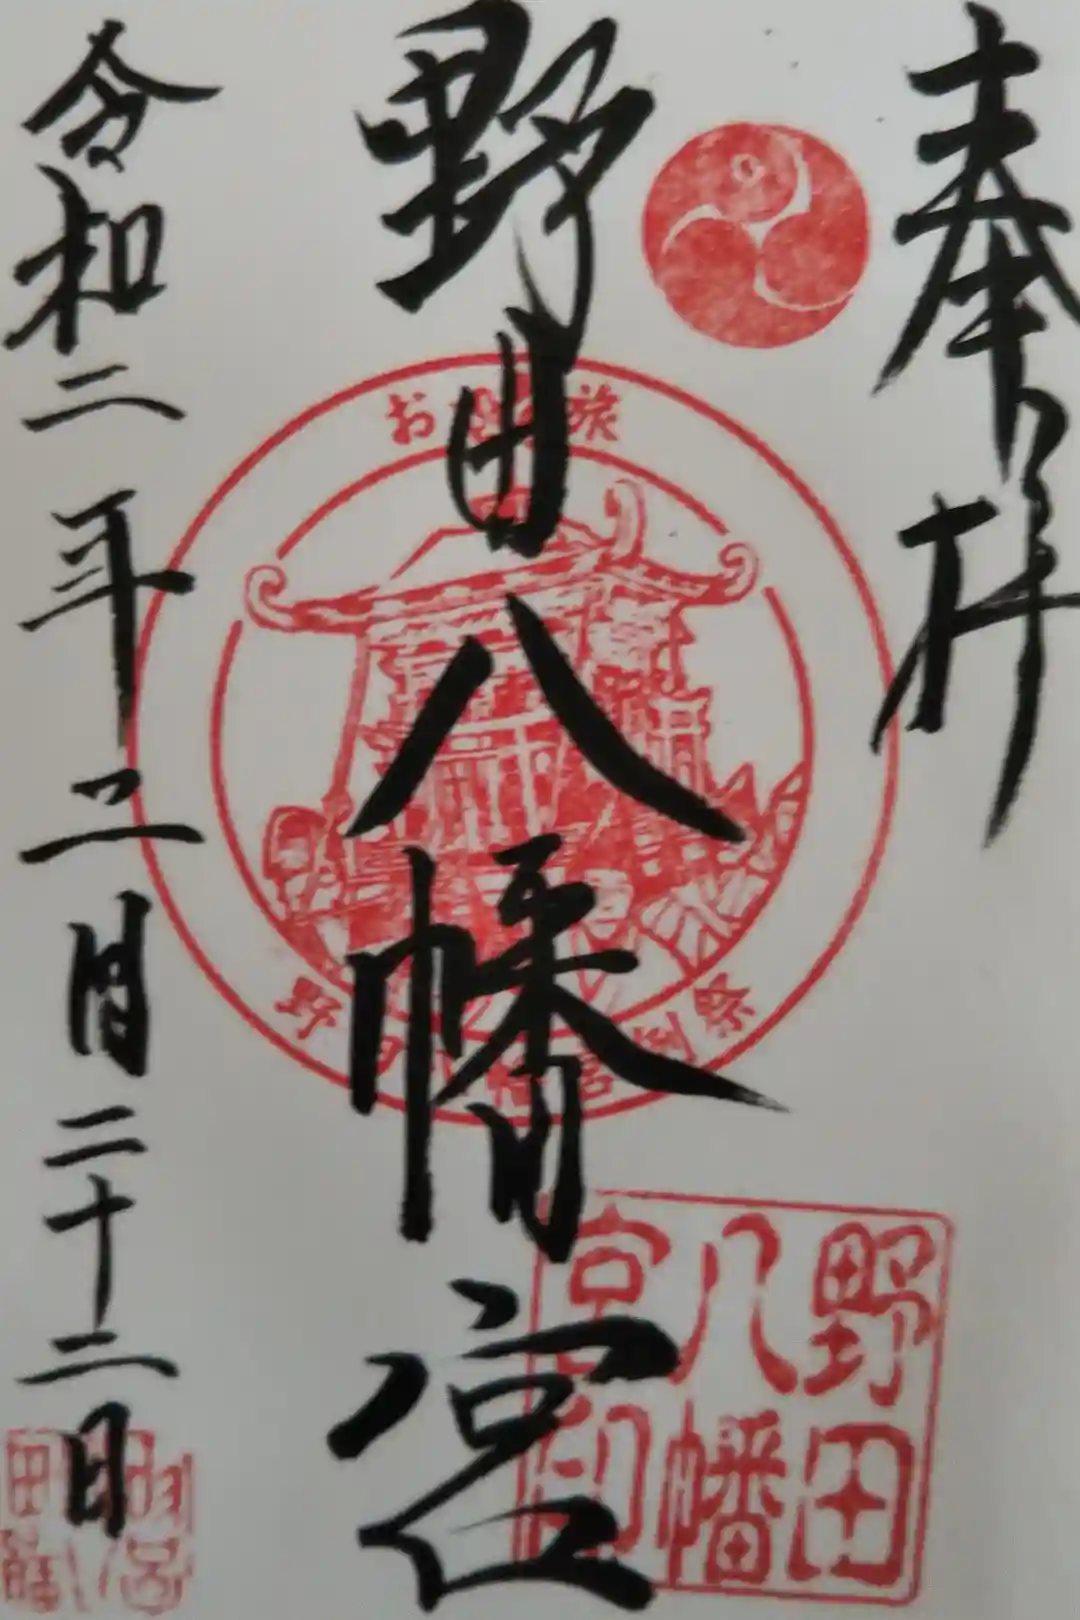 奉拝
野田八幡宮
令和二年二月二十二日
お 旅
野田八幡宮例祭
野田
八幡
宮印